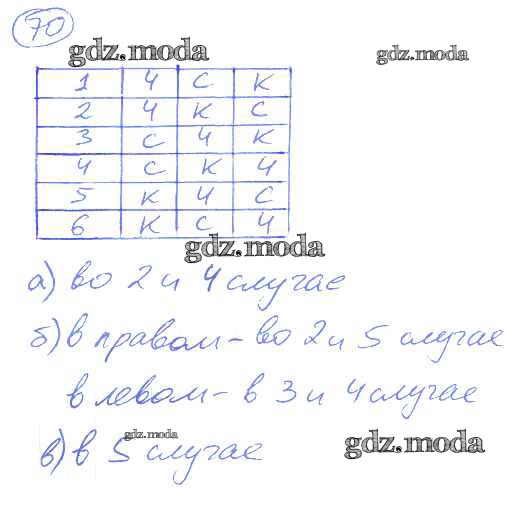 70
gdz.moda gdz.moda
1 Ч С К
2 Ч К С
3 С Ч К
4 С К Ч
5 К Ч С
6 К С Ч
gdz.moda
а) во 2 и 4 случае
б) в правом - во 2 и 5 случае
в левом - в 3 и 4 случае
gdz.moda
в) в 5 случае
gdz.moda